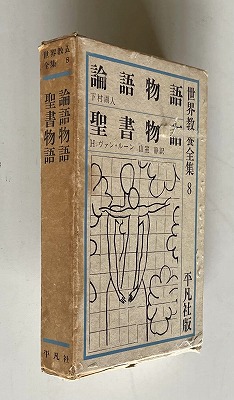 世界教養全集 8
論語物語
下村湖人
聖書物語
H・ヴァン・ルーン 山室 静訳
平凡社版
世界教養全集 8
論語物語
聖書物語
平凡社